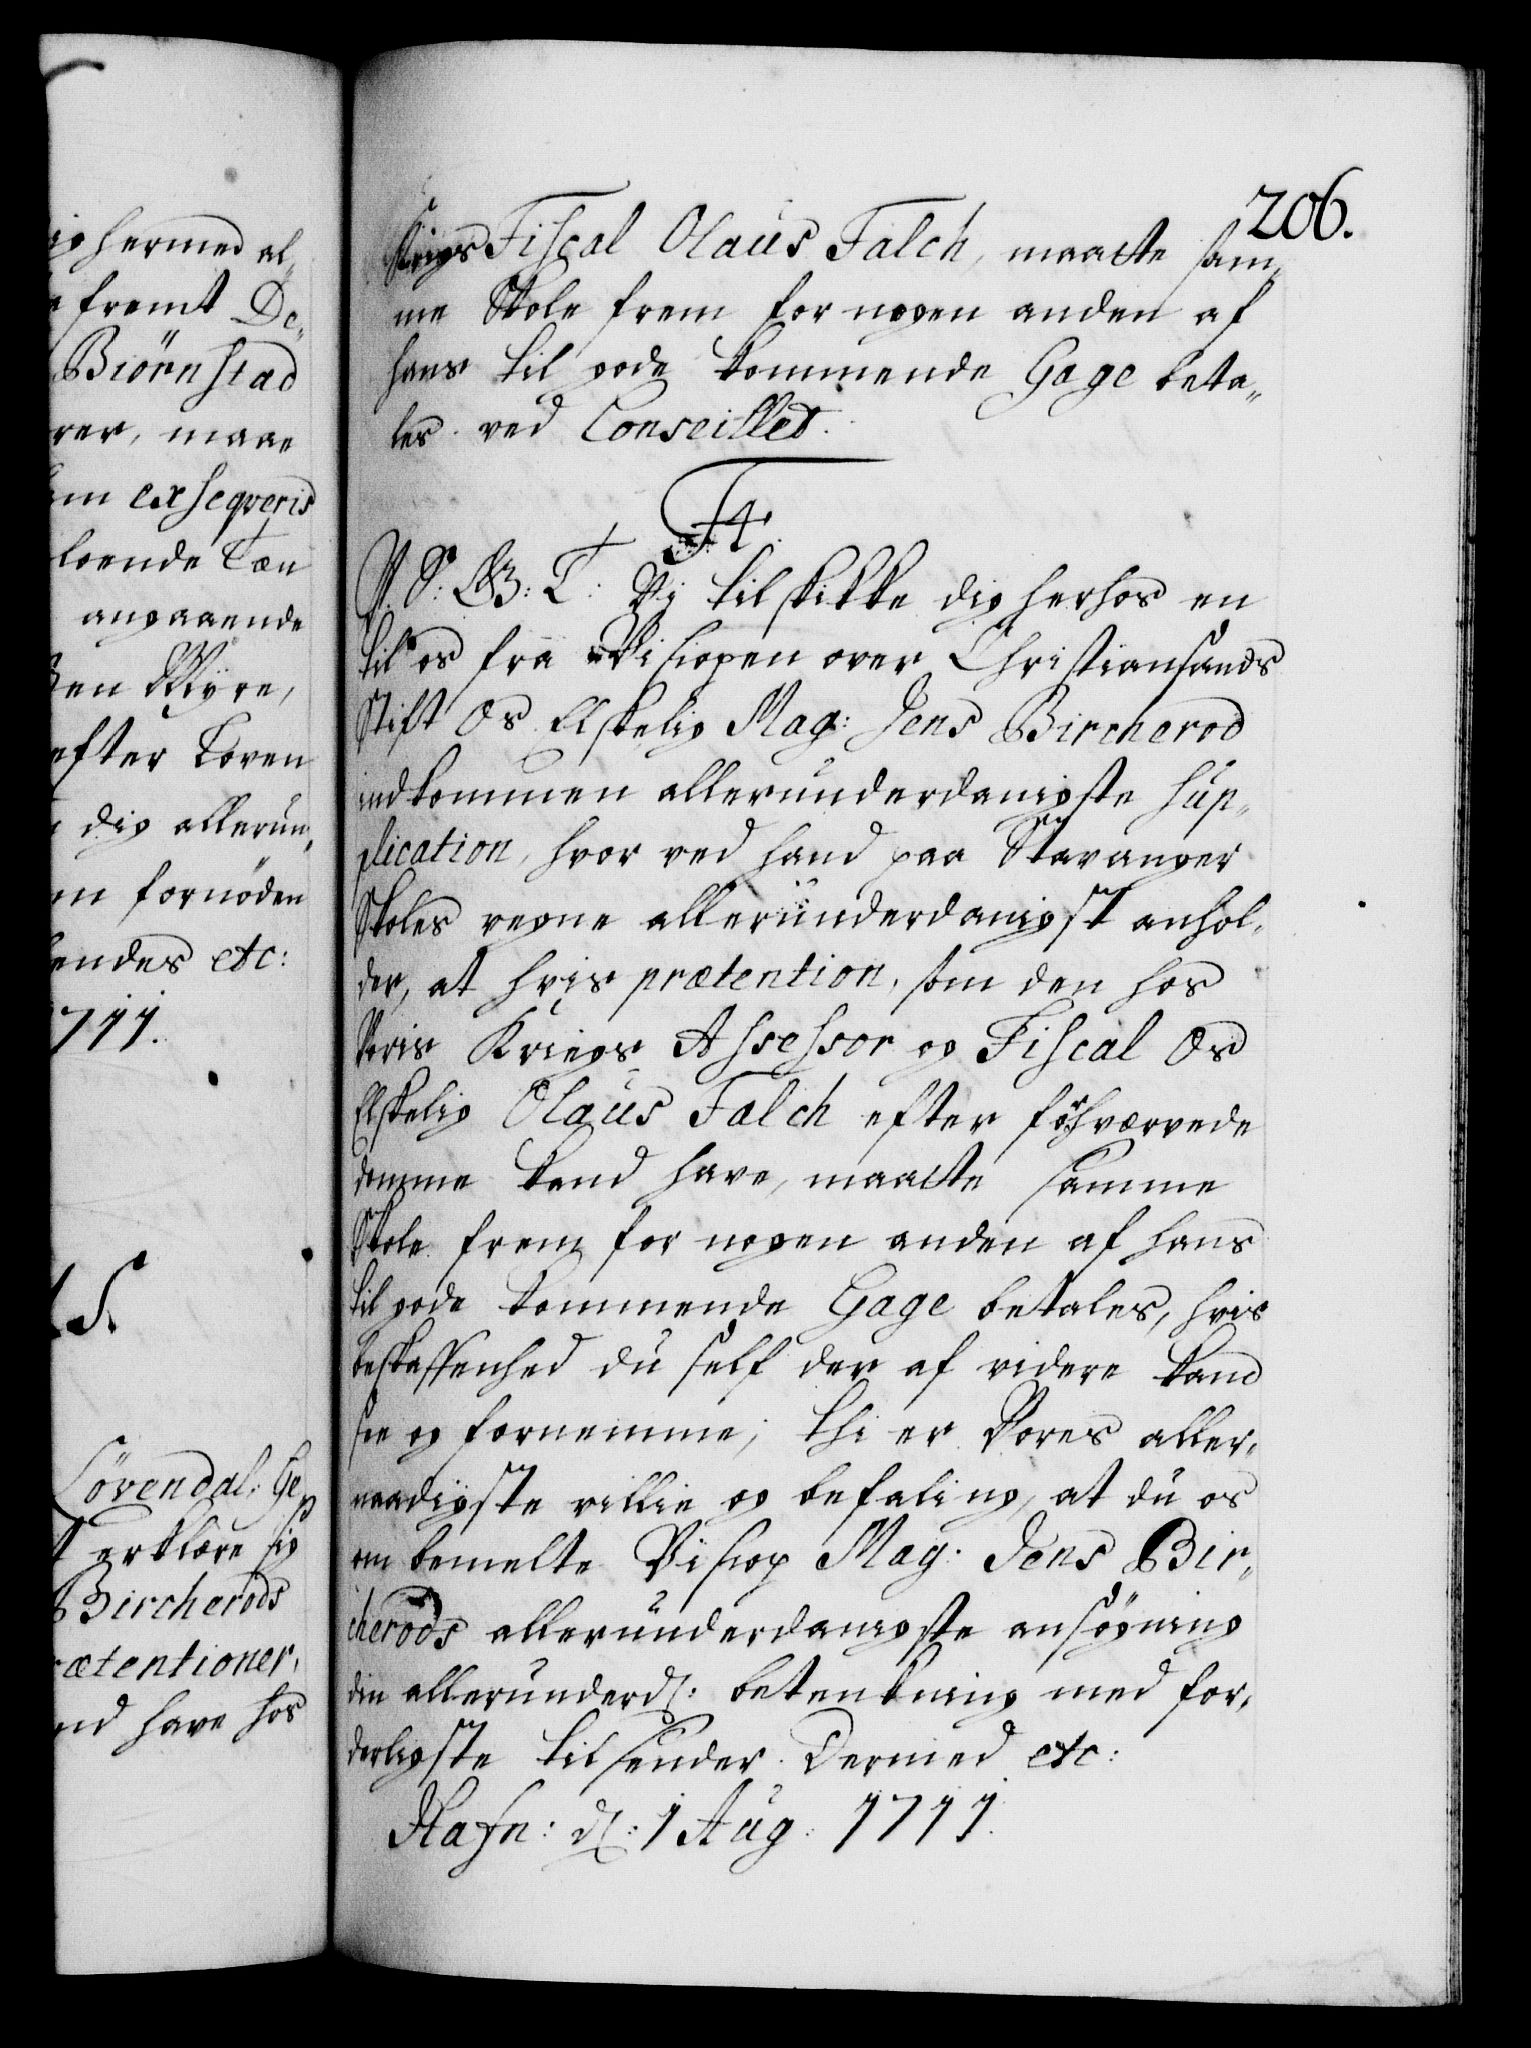 ig hermed al„
fremt De„
Biörnstad
rer, maae
em exseqveris
loende Tæn
angaaende
en Myre,
efter Loven
dig allerun„
fornöden
endes etc:
711.
Lövendal: Ge
erklære sig
Bircherods
ætentioner,
nd have hos
206.
Krigs Fiscal Olaus Falch, maatte sam„
me Skole frem for nogen anden af
hans til gode kommende Gage beta„
les ved Conseillet.
F4.
V: S: G: T: Vi tilskikke dig herhos en
til os fra Biscopen over Christiansands
Stift Os Elskelig Mag: Jens Bircherod
indkommen allerunderdanigste sup„
plication, hvor ved hand paa Stavanger
Skoles vegne allerunderdanigst anhol„
der, at hvis prætention, som den hos
Voris Kriegs Assessor og Fiscal Os
Elskelig Olaus Falch efter forhværvede
domme kand have, maatte samme
Skole frem for nogen anden af hans
til gode kommende Gage betales, hvis
beskaffenhed du self der af videre kand
see og fornemme; thi er Vores aller„
naadigste villie og befaling, at du os
om bemelte Biscop Mag: Jens Bir„
cherods allerunderdanigste ansögning
din allerunderd: betenkning med for„
derligste tilsender. Dermed etc:
Hafn: d: 1 Aug: 1711.